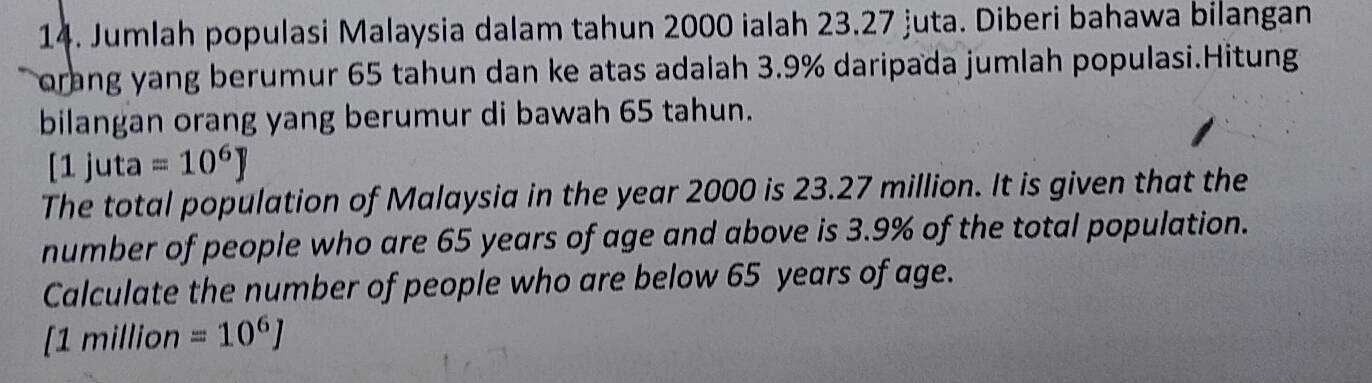 14. Jumlah populasi Malaysia dalam tahun 2000 ialah 23.27 juta. Diberi bahawa bilangan
orang yang berumur 65 tahun dan ke atas adalah 3.9% daripada jumlah populasi.Hitung
bilangan orang yang berumur di bawah 65 tahun.
[1 juta = 10⁶]
The total population of Malaysia in the year 2000 is 23.27 million. It is given that the
number of people who are 65 years of age and above is 3.9% of the total population.
Calculate the number of people who are below 65 years of age.
[1 million = 10⁶]